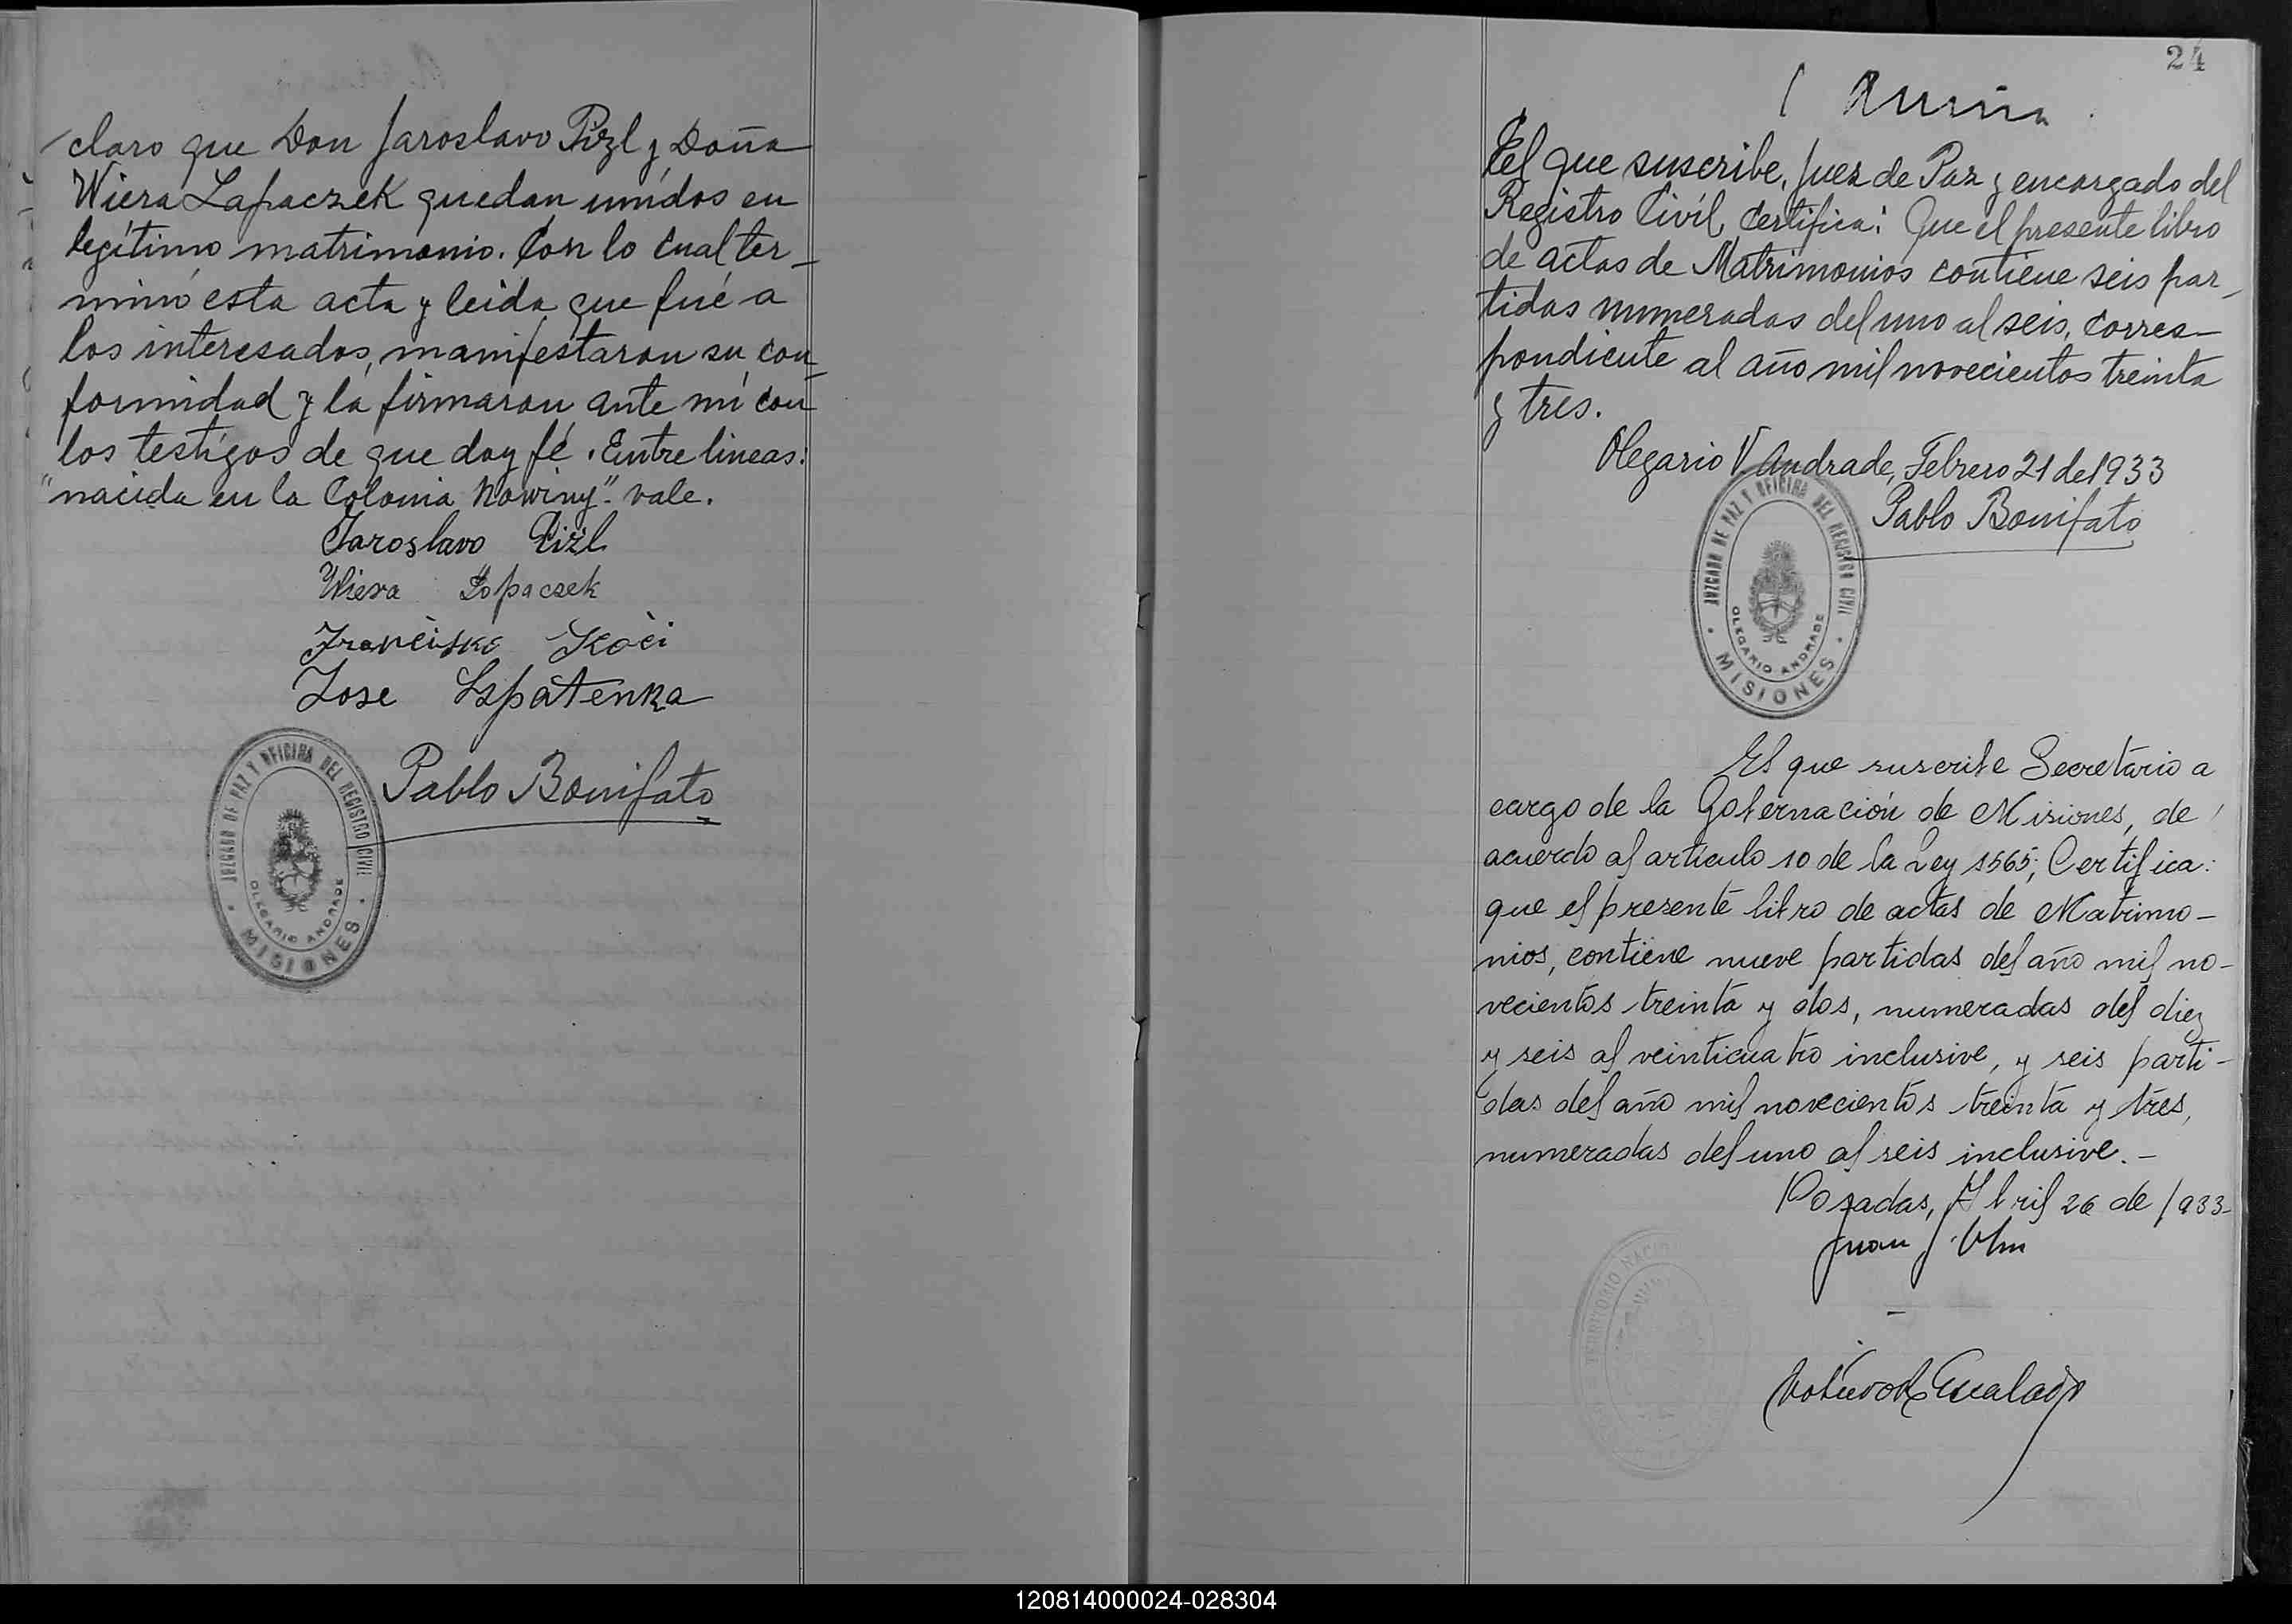 claro que Don Jaroslavo Pizl y Doña
Wiera Lapaczek quedan unidos en
legítimo matrimonio. Con lo cual ter-
minó esta acta y leida que fué a
los interesados, manifestaron su con-
formidad y la firmaron ante mí con
los testigos de que doy fé. Entre lineas:
"nacida en la Colonia Nowiny" vale.
Jaroslavo Pizl
Wiera Lopaczek
Francisko Koci
Jose Szpatenka
Pablo Bonifato
JUZGADO DE PAZ Y OFICINA DEL REGISTRO CIVIL
OLEGARIO ANDRADE
MISIONES
24
El que suscribe, Juez de Paz y encargado del
Registro Civil, Certifica: Que el presente libro
de actas de Matrimonios contiene seis par-
tidas numeradas del uno al seis, corres-
pondiente al año mil novecientos treinta
y tres.
Olegario V Andrade, Febrero 21 de 1933
Pablo Bonifato
JUZGADO DE PAZ Y OFICINA DEL REGISTRO CIVIL
OLEGARIO ANDRADE
MISIONES
El que suscribe Secretario a
cargo de la Gobernación de Misiones, de
acuerdo al artículo 10 de la Ley 1565; Certifica:
que el presente libro de actas de Matrimo-
nios, contiene nueve partidas del año mil no-
vecientos treinta y dos, numeradas del diez
y seis al veinticuatro inclusive, y seis parti-
das del año mil novecientos treinta y tres,
numeradas del uno al seis inclusive.-
Posadas, Abril 26 de 1933-
Juan J.
120814000024-028304